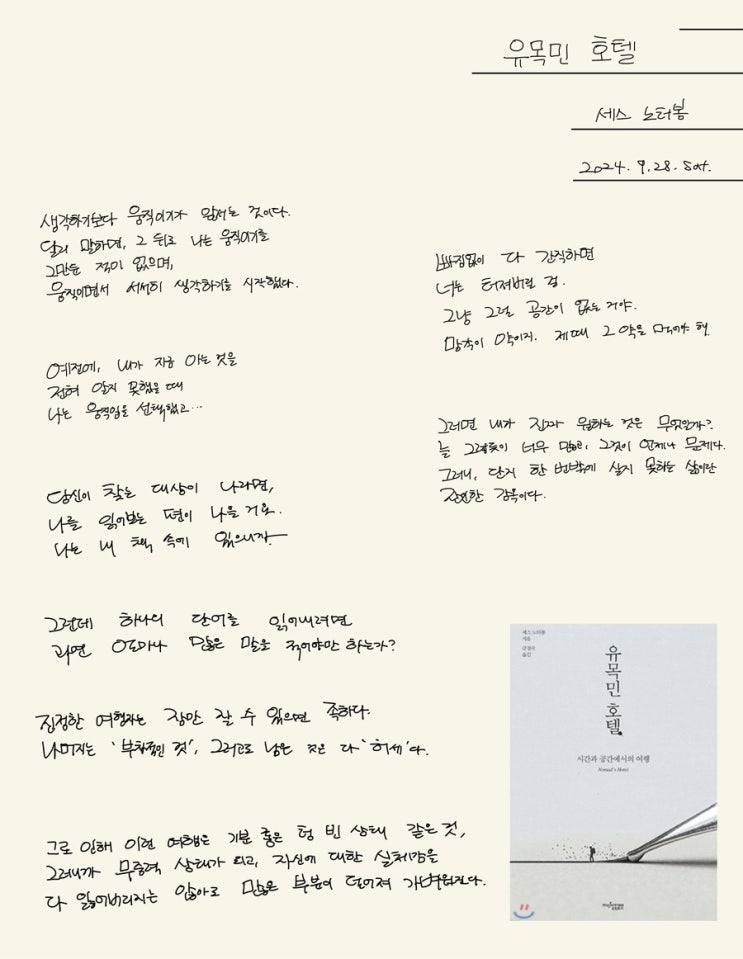 유목민 호텔
세스 노터봄
2024. 9. 28. Sat.
생각하기보다 움직이기가 앞서는 것이다.
달리 말하면, 그 뒤로 나는 움직이기를
그만둔 적이 없으며,
움직이면서 서서히 생각하기를 시작했다.
예전에, 내가 지금 아는 것을
전혀 알지 못했을 때
나는 움직임을 선택했고...
당신이 찾는 대상이 나라면,
나를 읽어보는 편이 나을 거요.
나는 내 책 속에 있으니까-
그런데 하나의 단어를 읽어내려면
과연 얼마나 많은 말을 적어야만 하는가?
진정한 여행자는 장만 잘 수 있으면 족하다.
나머지는 '부차적인 것', 그러고도 남은 것은 다 '허세'다.
그로 인해 이런 여행은 기분 좋은 텅 빈 상태 같은 것,
그러니까 무중력 상태가 되고, 자신에 대한 실체감을
다 잃어버리지는 않아도 많은 부분이 떨어져 가벼워진다.
빠짐없이 다 간직하면
너는 터져버릴 걸.
그냥 그럴 공간이 없는 거야.
망각이 약이지. 제때 그 약을 먹어야 해.
그러면 내가 진짜 원하는 것은 무엇인가?
늘 그렇듯이 너무 많고, 그것이 언제나 문제다.
그러니, 단지 한 번밖에 살지 못하는 삶이란
잔인한 감옥이다.
세스 노터봄
지음
금경숙
옮김
유목민 호텔
시간과 공간에서의 여행
Nomad's Hotel